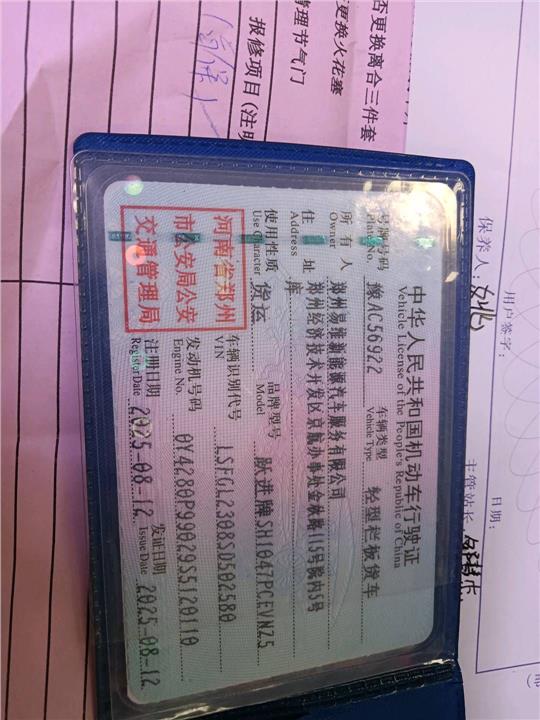 否更换离合三件套
更换火花塞
管理节气门
报修项目(注明
保养人:
用户签字:
日期:
主管站长:
中华人民共和国机动车行驶证
Vehicle License of the People's Republic of China
号牌号码 豫AC56922 车辆类型 轻型栏板货车
Plate No. Vehicle Type
所有人 郑州易维新能源汽车服务有限公司
Owner
住址 郑州经济技术开发区京航办事处金航路115号院内5号
Address 库
使用性质 货运 品牌型号 跃进牌SH1047PCEVNZ5
Use Character Model
河南省郑州
市公安局公安
交通管理局
车辆识别代号 LSFGL2308SD502580
VIN
发动机号码 0Y4280P99029S5120110
Engine No.
注册日期 2025-08-12 发证日期 2025-08-12
Register Date Issue Date